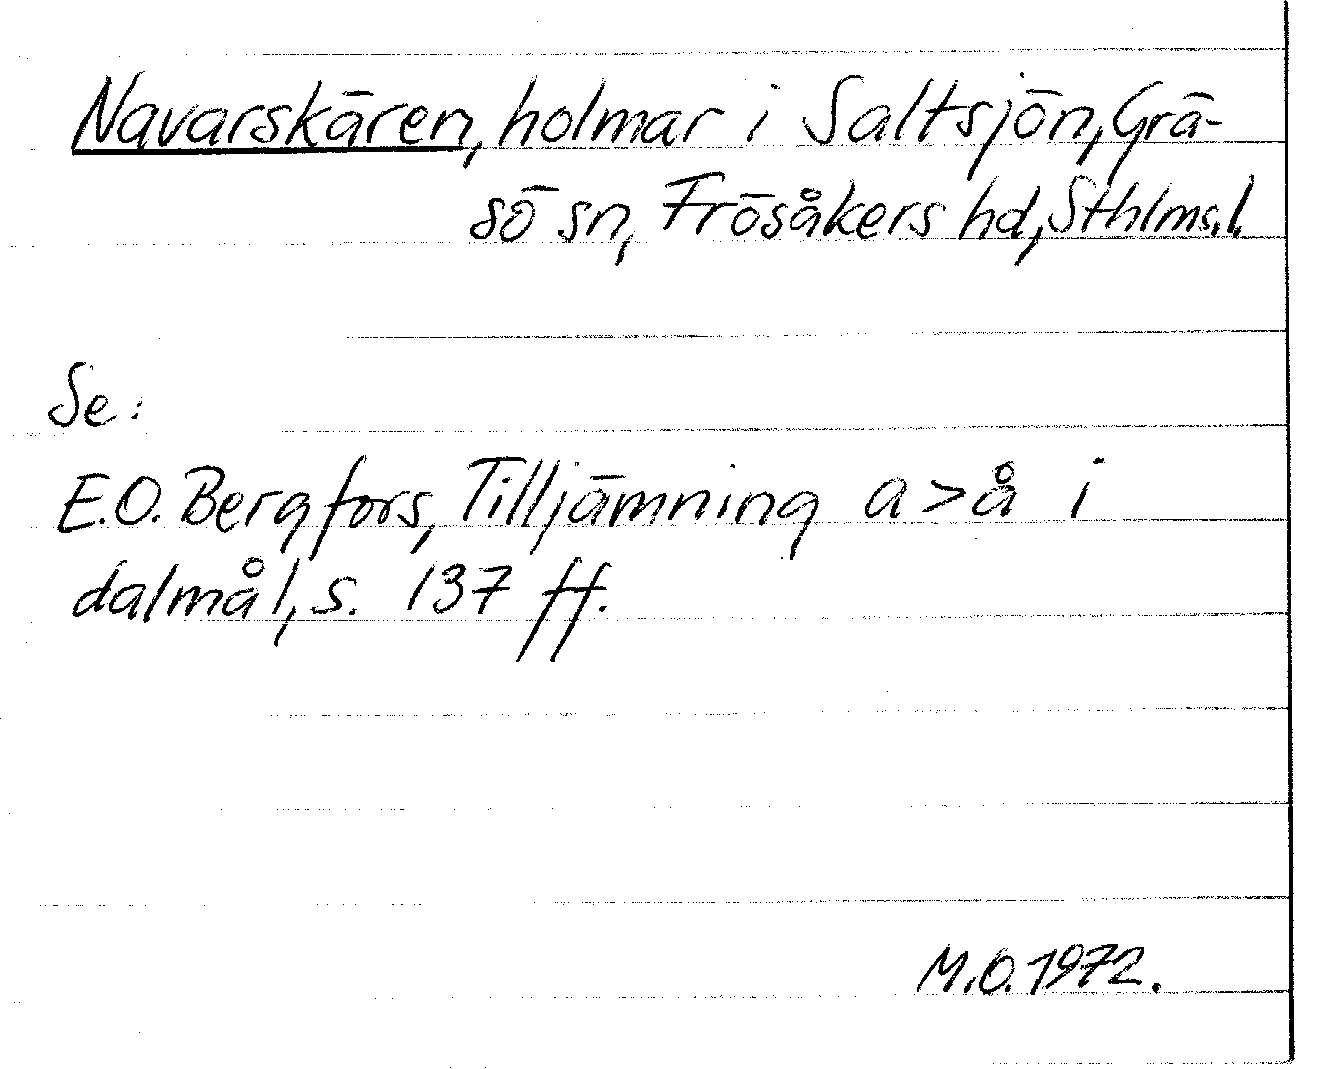 Navarskären, holmar i Saltsjön, Grä-
sö sn, Frösåkers hd, Sthlms.l.
Se:
E.O. Bergfors, Tilljämning a>å i
dalmål, s. 137 ff.
M.O. 1972.